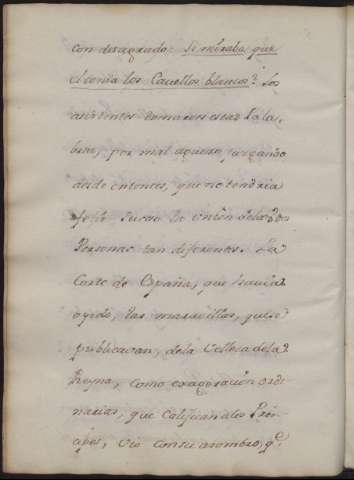 con desagrado: Si miraba que
el tenia los Cavellos blancos? Los
asistentes tomaron estas Pala,
bras, por mal aguero, juzgando
desde entonces, que no tendria
feliz suceso la union de las dos
Personas tan diferentes. La
Corte de España, que havia
oydo, las maravillas, que se
publicavan, dela Velleza dela
Reyna, como exageracion ordi
narias, que Califican alos Prin
cipes, vio con su asombro, q.e